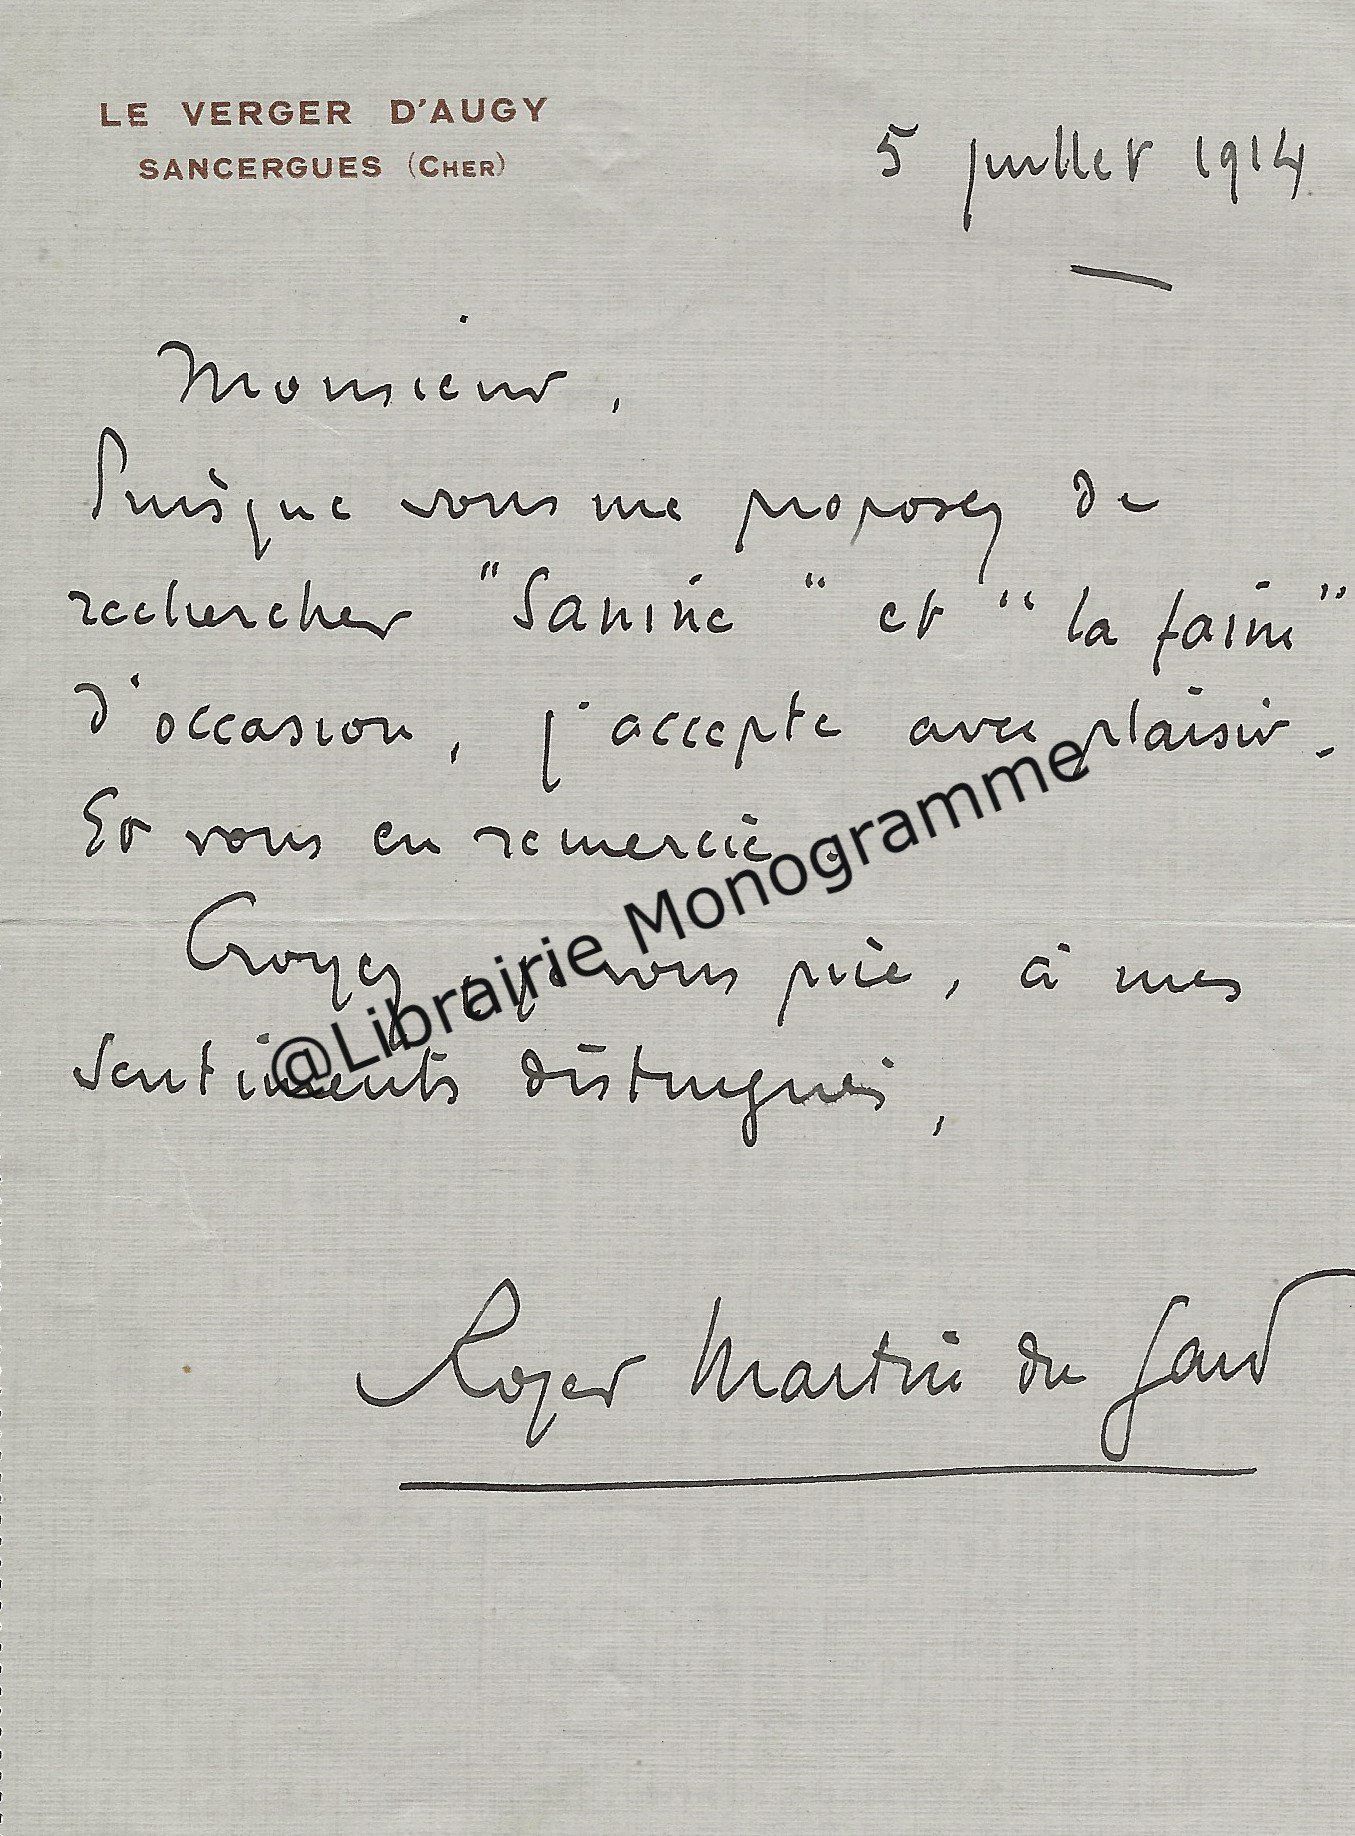 LE VERGER D'AUGY
SANCERGUES (CHER)
5 juillet 1914
Monsieur,
Puisque vous me proposez de
rechercher "Sanine" et "la faim"
d'occasion, j'accepte avec plaisir.
Et vous en remercie.
Croyez, je vous prie, à mes
sentiments distingués,
Roger Martin du Gard
@Librairie Monogramme